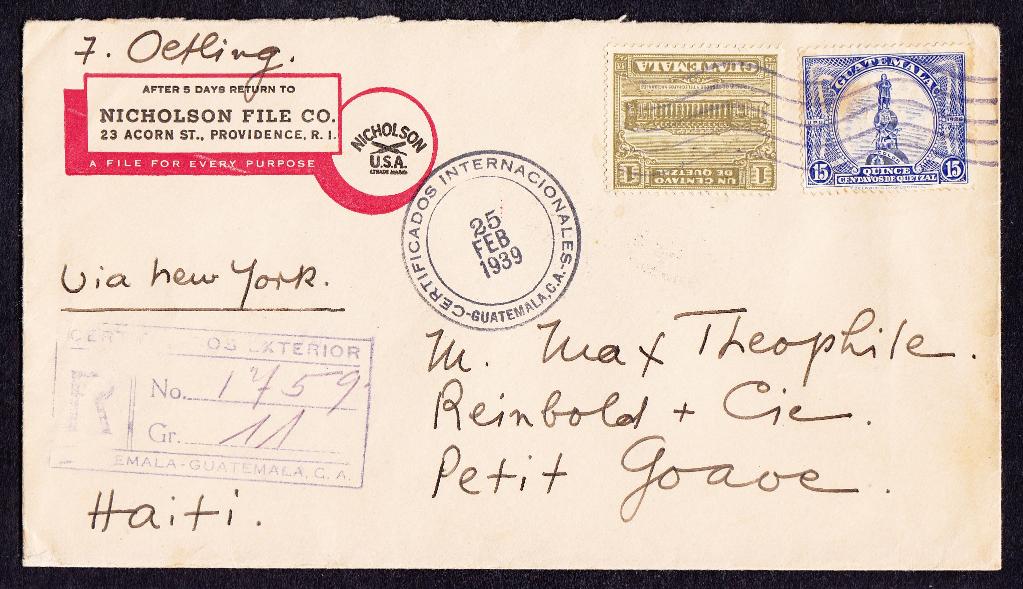 7. Oetling.
AFTER 5 DAYS RETURN TO
NICHOLSON FILE CO.
23 ACORN ST., PROVIDENCE, R. I.
A FILE FOR EVERY PURPOSE
NICHOLSON
U.S.A.
TRADE MARK
GUATEMALA
UN CENTAVO
DE QUETZAL
1 1
GUATEMALA
15 QUINCE 15
CENTAVOS DE QUETZAL
CERTIFICADOS INTERNACIONALES
-GUATEMALA, C.A.-
25
FEB
1939
Via New York.
OS EXTERIOR
R
No. 1759
Gr. 11
EMALA-GUATEMALA, C. A.
M. Max Theophile.
Reinbold + Cie.
Petit Goave.
Haiti.